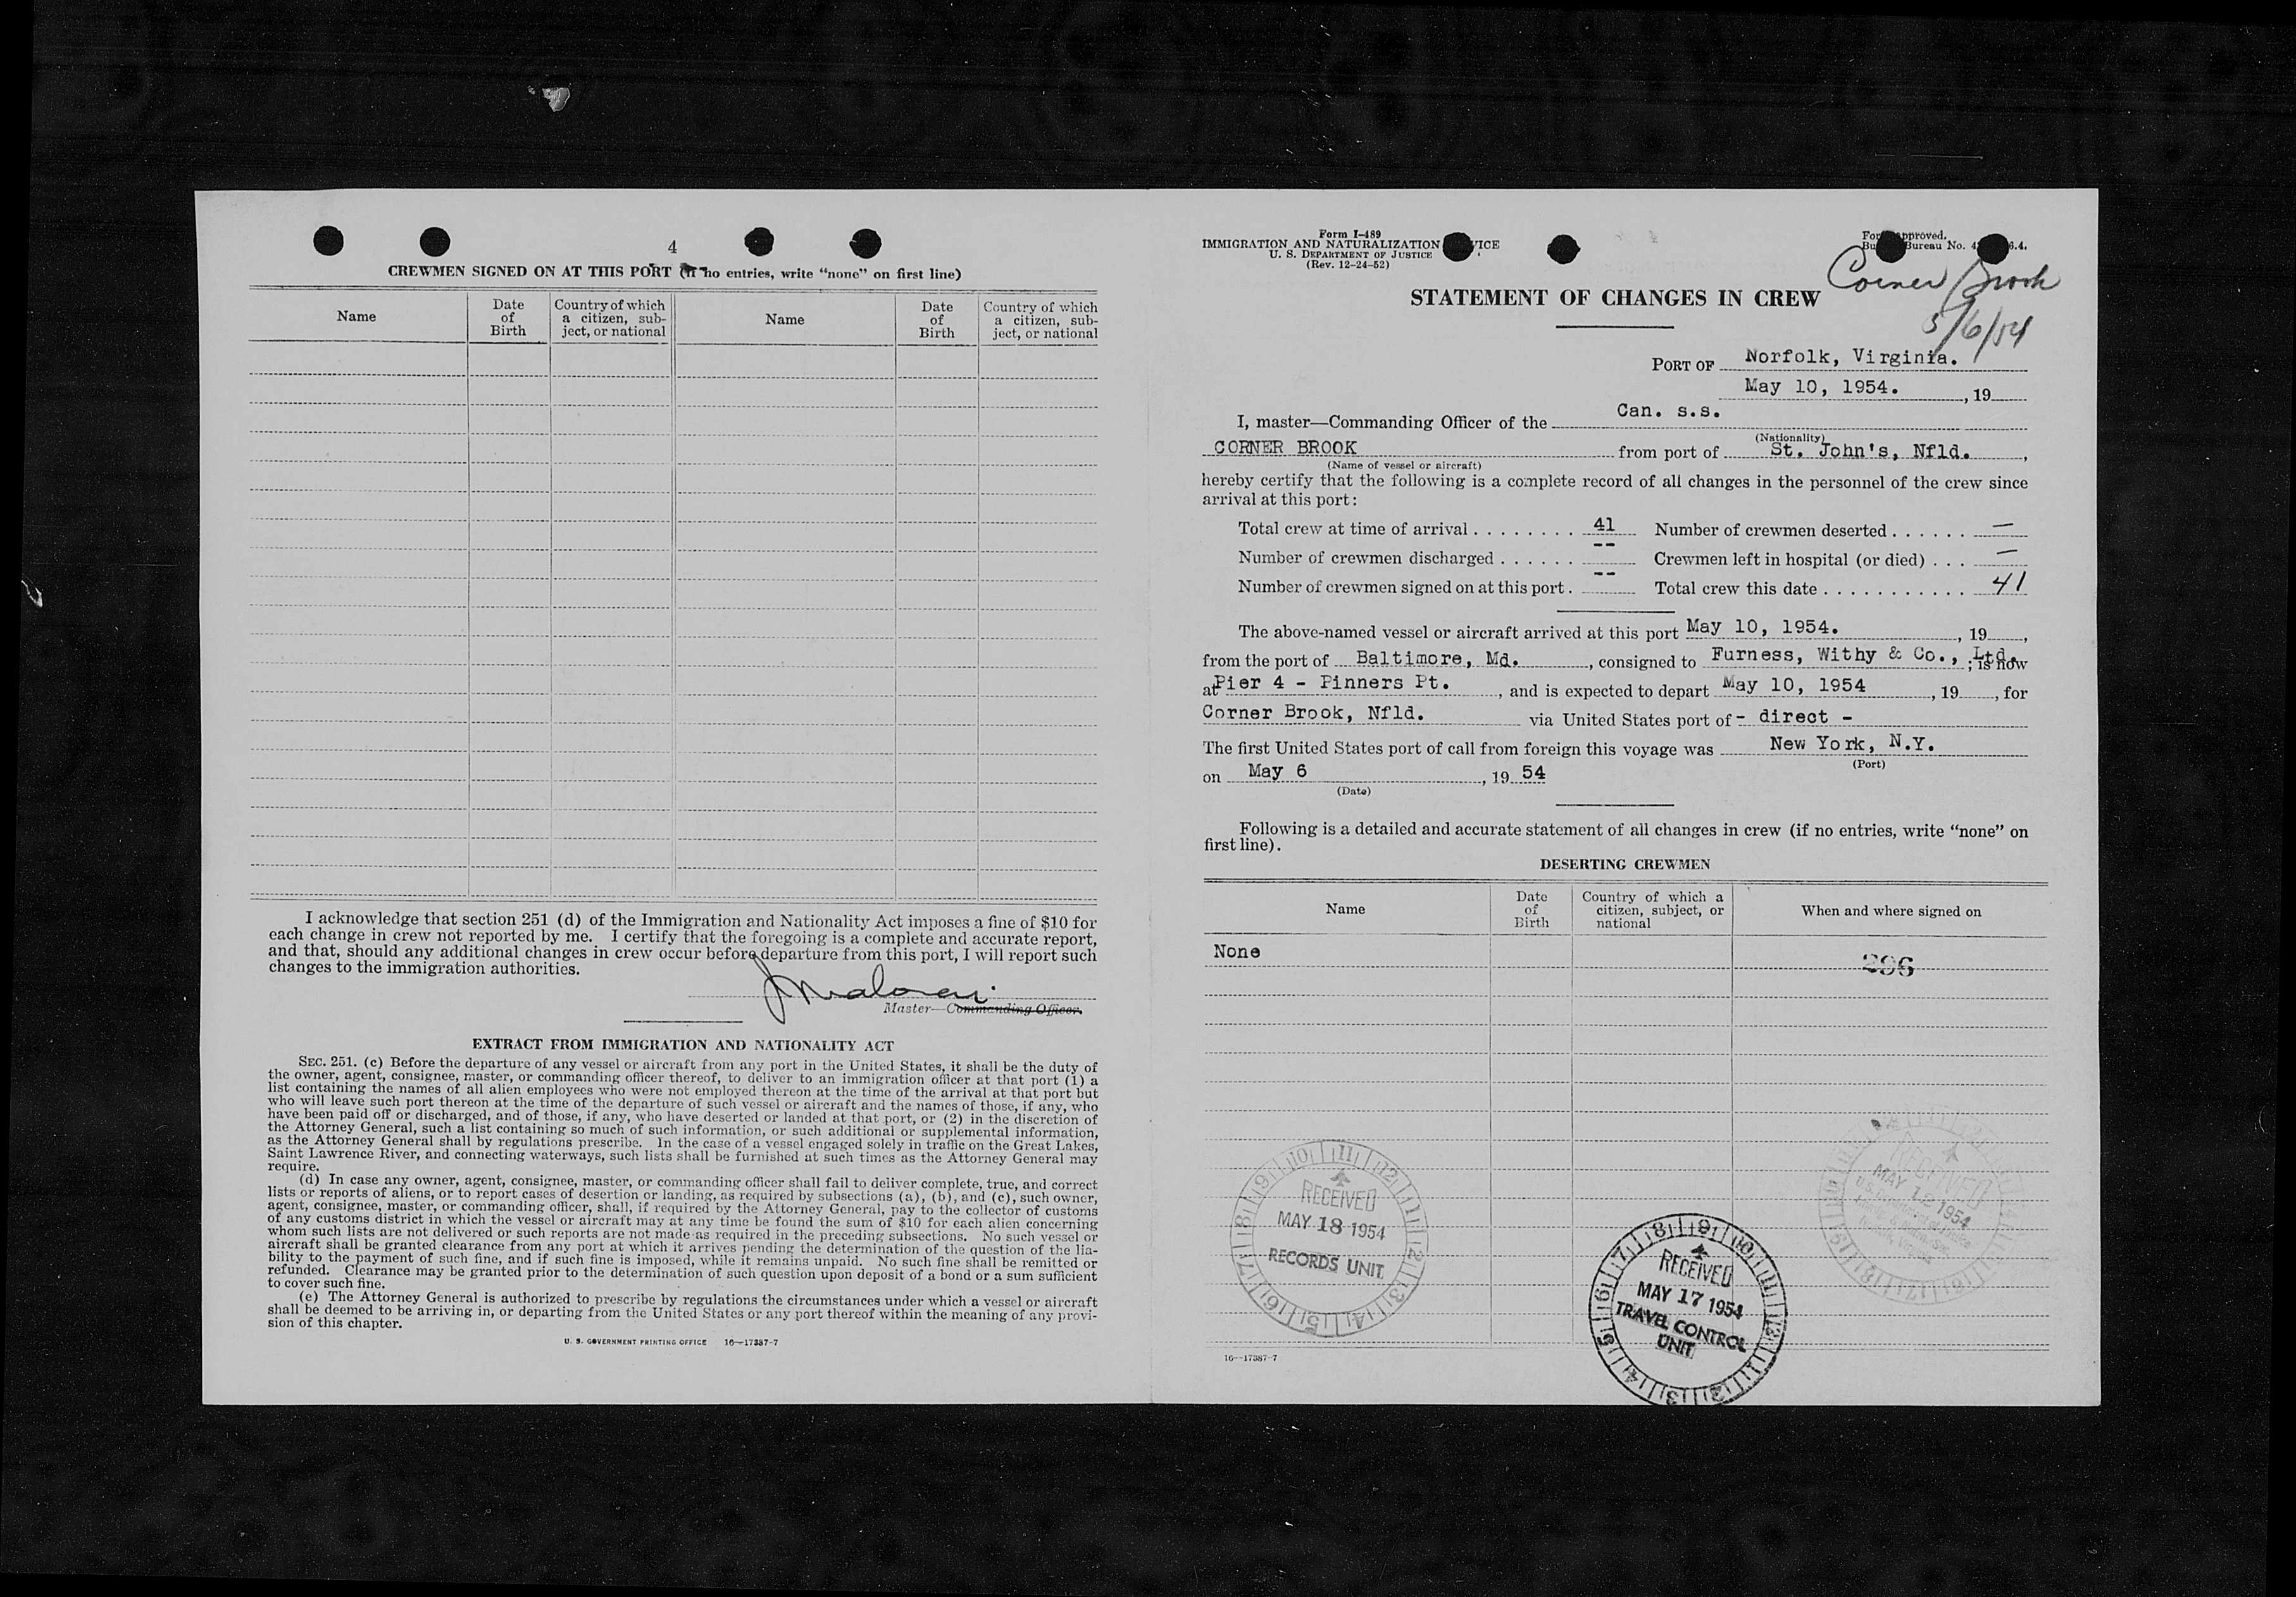 4
CREWMEN SIGNED ON AT THIS PORT (If no entries, write “none” on first line)
Name
Date of Birth
Country of which a citizen, sub-ject, or national
Name
Date of Birth
Country of which a citizen, sub-ject, or national
I acknowledge that section 251 (d) of the Immigration and Nationality Act imposes a fine of $10 for
each change in crew not reported by me. I certify that the foregoing is a complete and accurate report,
and that, should any additional changes in crew occur before departure from this port, I will report such
changes to the immigration authorities.
Master—Commanding Officer.
EXTRACT FROM IMMIGRATION AND NATIONALITY ACT
SEC. 251. (c) Before the departure of any vessel or aircraft from any port in the United States, it shall be the duty of
the owner, agent, consignee, master, or commanding officer thereof, to deliver to an immigration officer at that port (1) a
list containing the names of all alien employees who were not employed thereon at the time of the arrival at that port but
who will leave such port thereon at the time of the departure of such vessel or aircraft and the names of those, if any, who
have been paid off or discharged, and of those, if any, who have deserted or landed at that port, or (2) in the discretion of
the Attorney General, such a list containing so much of such information, or such additional or supplemental information,
as the Attorney General shall by regulations prescribe. In the case of a vessel engaged solely in traffic on the Great Lakes,
Saint Lawrence River, and connecting waterways, such lists shall be furnished at such times as the Attorney General may
require.
(d) In case any owner, agent, consignee, master, or commanding officer shall fail to deliver complete, true, and correct
lists or reports of aliens, or to report cases of desertion or landing, as required by subsections (a), (b), and (c), such owner,
agent, consignee, master, or commanding officer, shall, if required by the Attorney General, pay to the collector of customs
of any customs district in which the vessel or aircraft may at any time be found the sum of $10 for each alien concerning
whom such lists are not delivered or such reports are not made as required in the preceding subsections. No such vessel or
aircraft shall be granted clearance from any port at which it arrives pending the determination of the question of the lia-
bility to the payment of such fine, and if such fine is imposed, while it remains unpaid. No such fine shall be remitted or
refunded. Clearance may be granted prior to the determination of such question upon deposit of a bond or a sum sufficient
to cover such fine.
(e) The Attorney General is authorized to prescribe by regulations the circumstances under which a vessel or aircraft
shall be deemed to be arriving in, or departing from the United States or any port thereof within the meaning of any provi-
sion of this chapter.
U. S. GOVERNMENT PRINTING OFFICE 16—17387-7
Form I-489
IMMIGRATION AND NATURALIZATION
U. S. DEPARTMENT OF JUSTICE
(Rev. 12-24-52)
Bureau No.
Corner Brook
5/6/54
STATEMENT OF CHANGES IN CREW
PORT OF Norfolk, Virginia.
May 10, 1954. , 19
I, master—Commanding Officer of the Can. s.s.
(Nationality)
CORNER BROOK from port of St. John's, Nfld. ,
(Name of vessel or aircraft)
hereby certify that the following is a complete record of all changes in the personnel of the crew since
arrival at this port:
Total crew at time of arrival . . . . . . . . 41 Number of crewmen deserted . . . . . . —
Number of crewmen discharged . . . . . . -- Crewmen left in hospital (or died) . . . —
Number of crewmen signed on at this port . -- Total crew this date . . . . . . . . . . . 41
The above-named vessel or aircraft arrived at this port May 10, 1954. , 19 ,
from the port of Baltimore, Md. , consigned to Furness, Withy & Co., Ltd. ; is now
at Pier 4 - Pinners Pt. , and is expected to depart May 10, 1954 , 19 , for
Corner Brook, Nfld. via United States port of - direct -
The first United States port of call from foreign this voyage was New York, N.Y.
(Port)
on May 6 , 19 54
(Date)
Following is a detailed and accurate statement of all changes in crew (if no entries, write “none” on
first line).
DESERTING CREWMEN
Name
Date of Birth
Country of which a citizen, subject, or national
When and where signed on
None
296
RECEIVED
MAY 18 1954
RECORDS UNIT
RECEIVED
MAY 17 1954
TRAVEL CONTROL
UNIT
RECEIVED
MAY 12 1954
16—17387-7